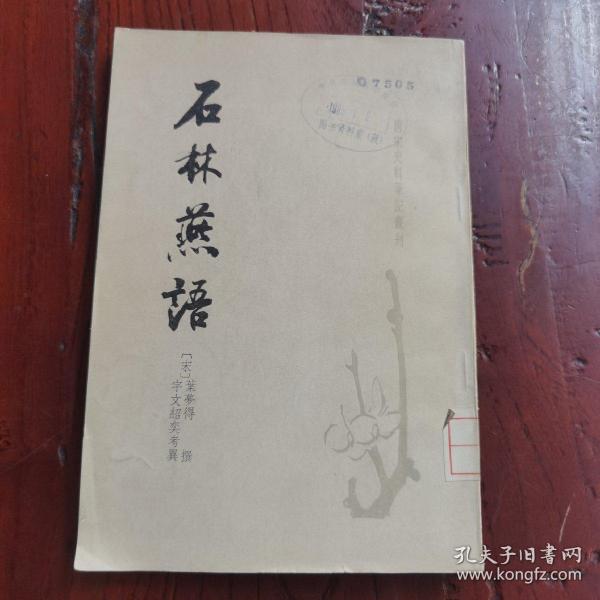 石林燕語
〔宋〕葉夢得 撰
宇文紹奕考異
唐宋史料筆記叢刊
07505
孔夫子旧书网
www.kongfz.com